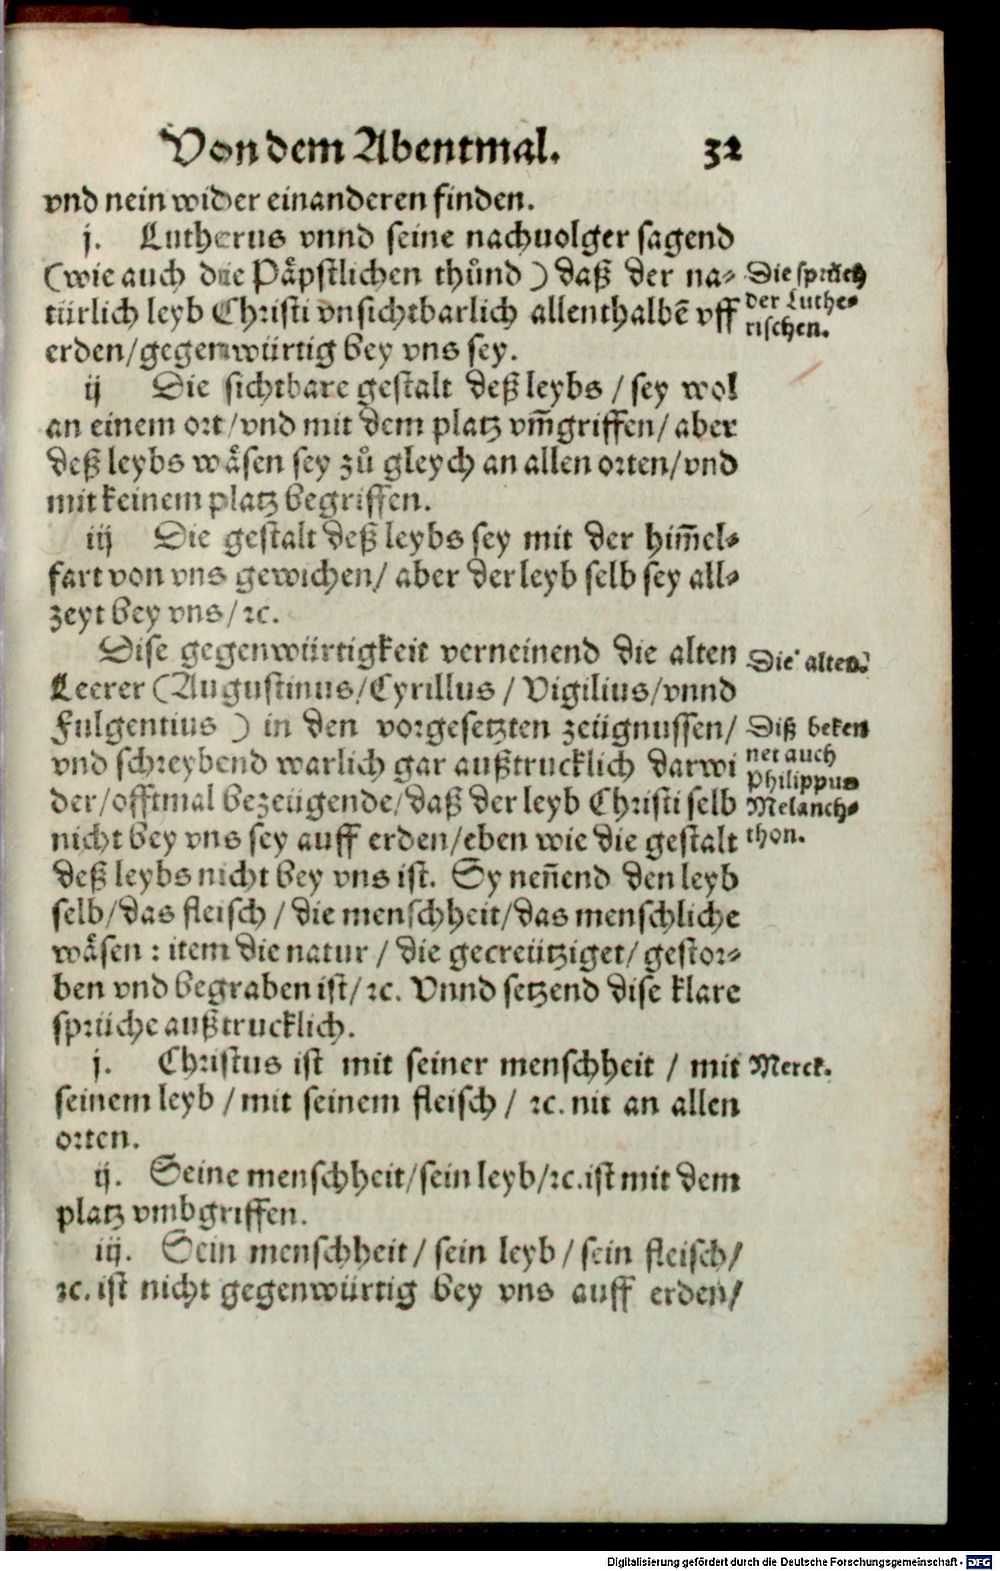 Von dem Abentmal. 32
vnd nein wider einanderen finden.
j. Lutherus vnnd seine nachuolger sagend
(wie auch die Påpstlichen thůnd) daß der na-
türlich leyb Christi vnsichtbarlich allenthalbē vff
erden/gegenwürtig bey vns sey.
Die sprüch
der Luthe-
rischen.
ij Die sichtbare gestalt deß leybs / sey wol
an einem ort/vnd mit dem platz vm̄griffen/ aber
deß leybs wåsen sey zů gleych an allen orten/vnd
mit keinem platz begriffen.
iij Die gestalt deß leybs sey mit der him̄el-
fart von vns gewichen/ aber der leyb selb sey all-
zeyt bey vns/ ꝛc.
Dise gegenwürtigkeit verneinend die alten
Leerer (Augustinus/Cyrillus / Vigilius/vnnd
Fulgentius ) in den vorgesetzten zeügnussen/
vnd schreybend warlich gar außtrucklich darwi
der/offtmal bezeügende/daß der leyb Christi selb
nicht bey vns sey auff erden/eben wie die gestalt
deß leybs nicht bey vns ist. Sy nen̄end den leyb
selb/das fleisch / die menschheit/das menschliche
wåsen : item die natur / die gecreütziget/ gestor-
ben vnd begraben ist/ ꝛc. Vnnd setzend dise klare
sprüche außtrucklich.
Die alten.
Diß beken
net auch
Philippus
Melanch-
thon.
j. Christus ist mit seiner menschheit / mit
seinem leyb / mit seinem fleisch / ꝛc. nit an allen
orten.
Merck.
ij. Seine menschheit/sein leyb/ꝛc. ist mit dem
platz vmbgriffen.
iij. Sein menschheit / sein leyb / sein fleisch/
ꝛc. ist nicht gegenwürtig bey vns auff erden/
Digitalisierung gefördert durch die Deutsche Forschungsgemeinschaft - DFG